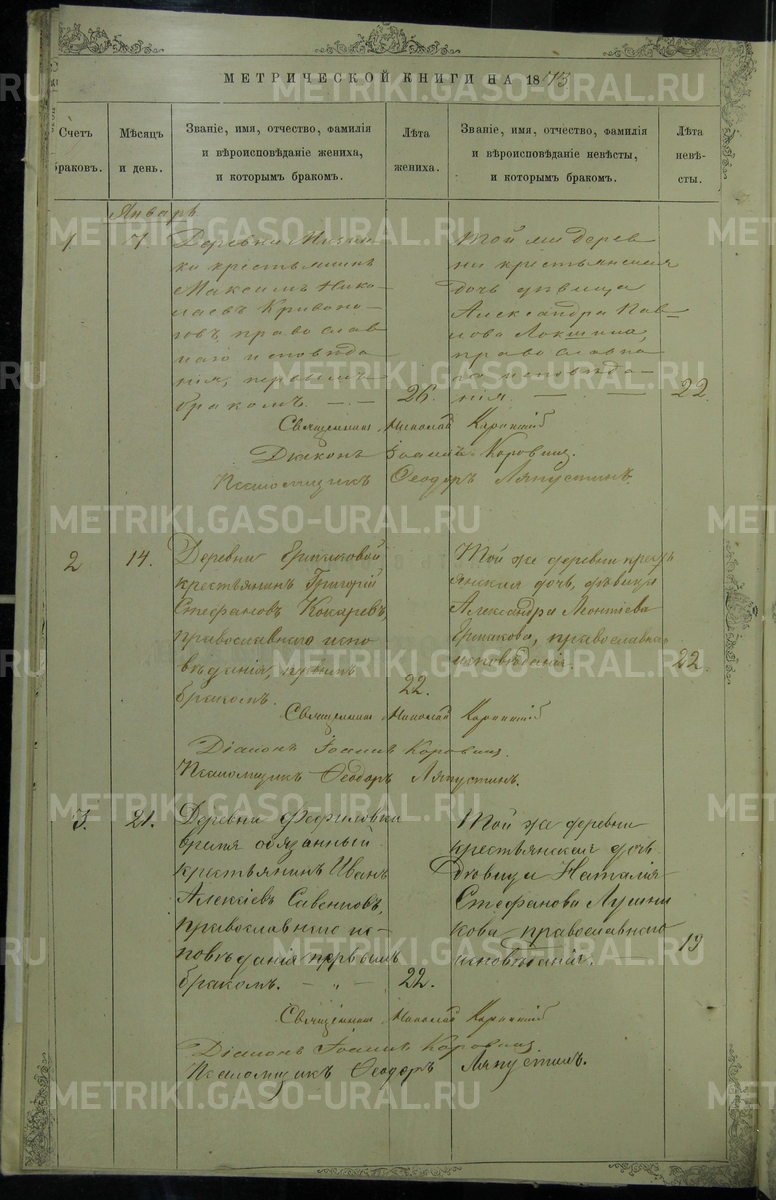 МЕТРИЧЕСКОЙ КНИГИ НА 1873
Счетъ браковъ.
Мѣсяцъ и день.
Званіе, имя, отчество, фамилія
и вѣроисповѣданіе жениха,
и которымъ бракомъ.
Лѣта жениха.
Званіе, имя, отчество, фамилія
и вѣроисповѣданіе невѣсты,
и которымъ бракомъ.
Лѣта невѣ-
сты.
Январь
1
7
Деревни
ки крестьянинъ
Максимъ Нико-
лаевъ Кривоно-
говъ, православ
наго исповѣда
нія, первымъ
бракомъ. — —
26.
Той же дерев
ни крестьянская
дочь дѣвица
Александра Пав-
лова Локшина,
православна
го исповѣда-
нія. — . —
22.
Священникъ Николай
Діаконъ Іоаннъ Коровинъ.
Псаломщикъ Ѳеодоръ Ляпустинъ.
2
14.
Деревни Ермаковой
крестьянинъ Григорій
Стефановъ Кокаревъ,
православнаго испо
вѣданія, первымъ
бракомъ.
22.
Той же деревни крест
янская дочь, дѣвица
Александра
Ермакова, православнаго
исповѣданія.
22.
Священникъ Николай
Діаконъ Іоаннъ Коровинъ.
Псаломщикъ Ѳеодоръ Ляпустинъ.
3.
21.
Деревни Фефиловки
время обязанный
крестьянинъ Иванъ
Алексіевъ Савенковъ,
православнаго ис-
повѣданія первымъ
бракомъ. — „ —
22.
Той же деревни
крестьянская дочь
дѣвица Наталія
Стефанова Лушни
кова православнаго
исповѣданія. —
19
Священникъ Николай
Діаконъ Іоаннъ Коровинъ.
Псаломщикъ Ѳеодоръ Ляпустинъ.
METRIKI.GASO-URAL.RU